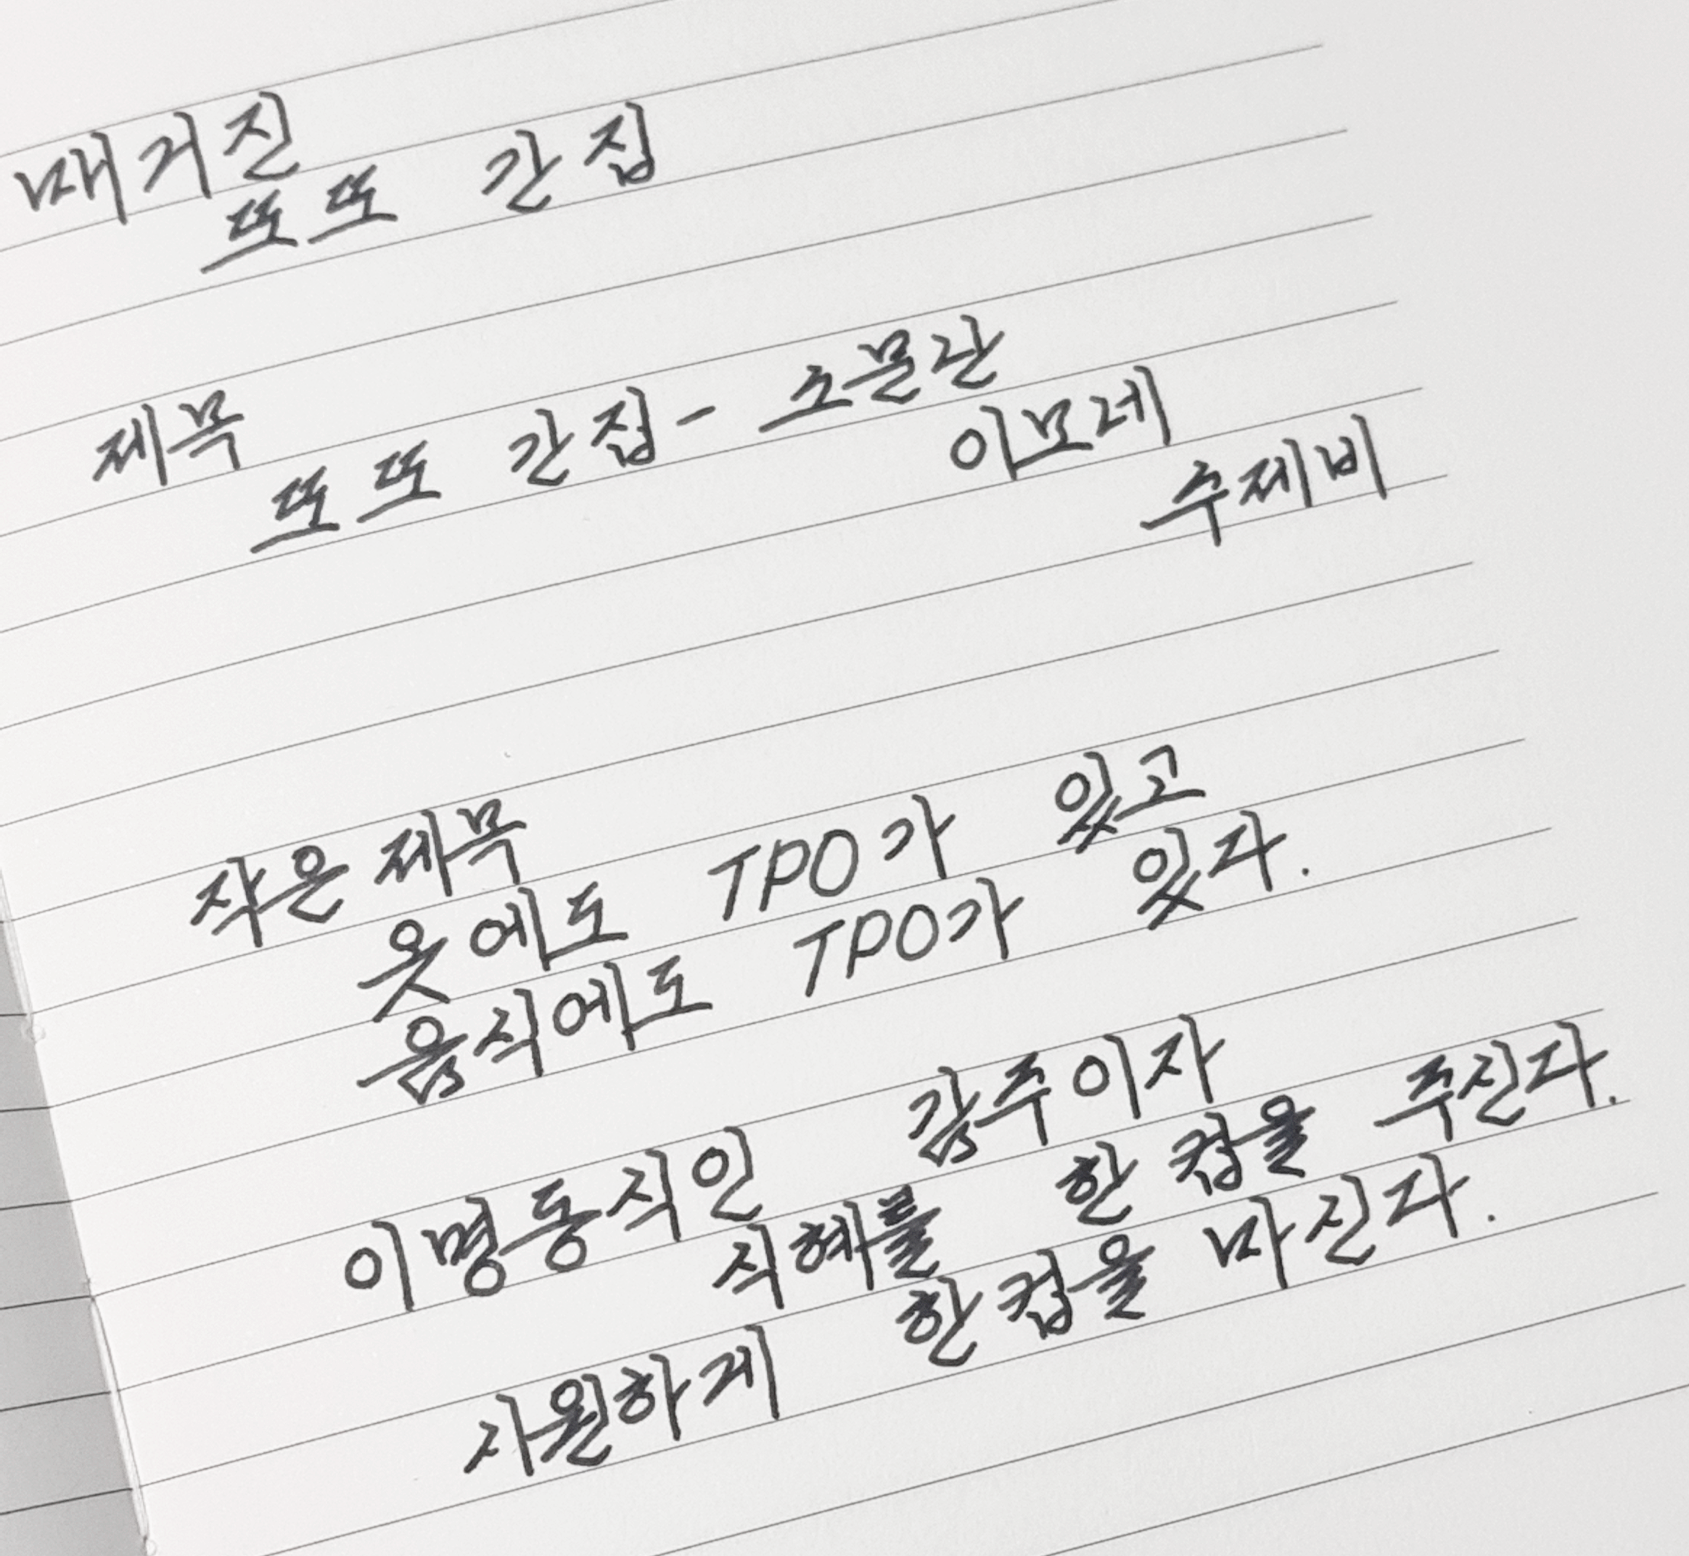 매거진
또또 간집
제목
또또 간집 - 소문난
이모네
수제비
작은 제목
옷에도 TPO가 있고
음식에도 TPO가 있다.
이명동식인 감주이자
식혜를 한 컵을 주신다.
시원하게 한컵을 마신다.